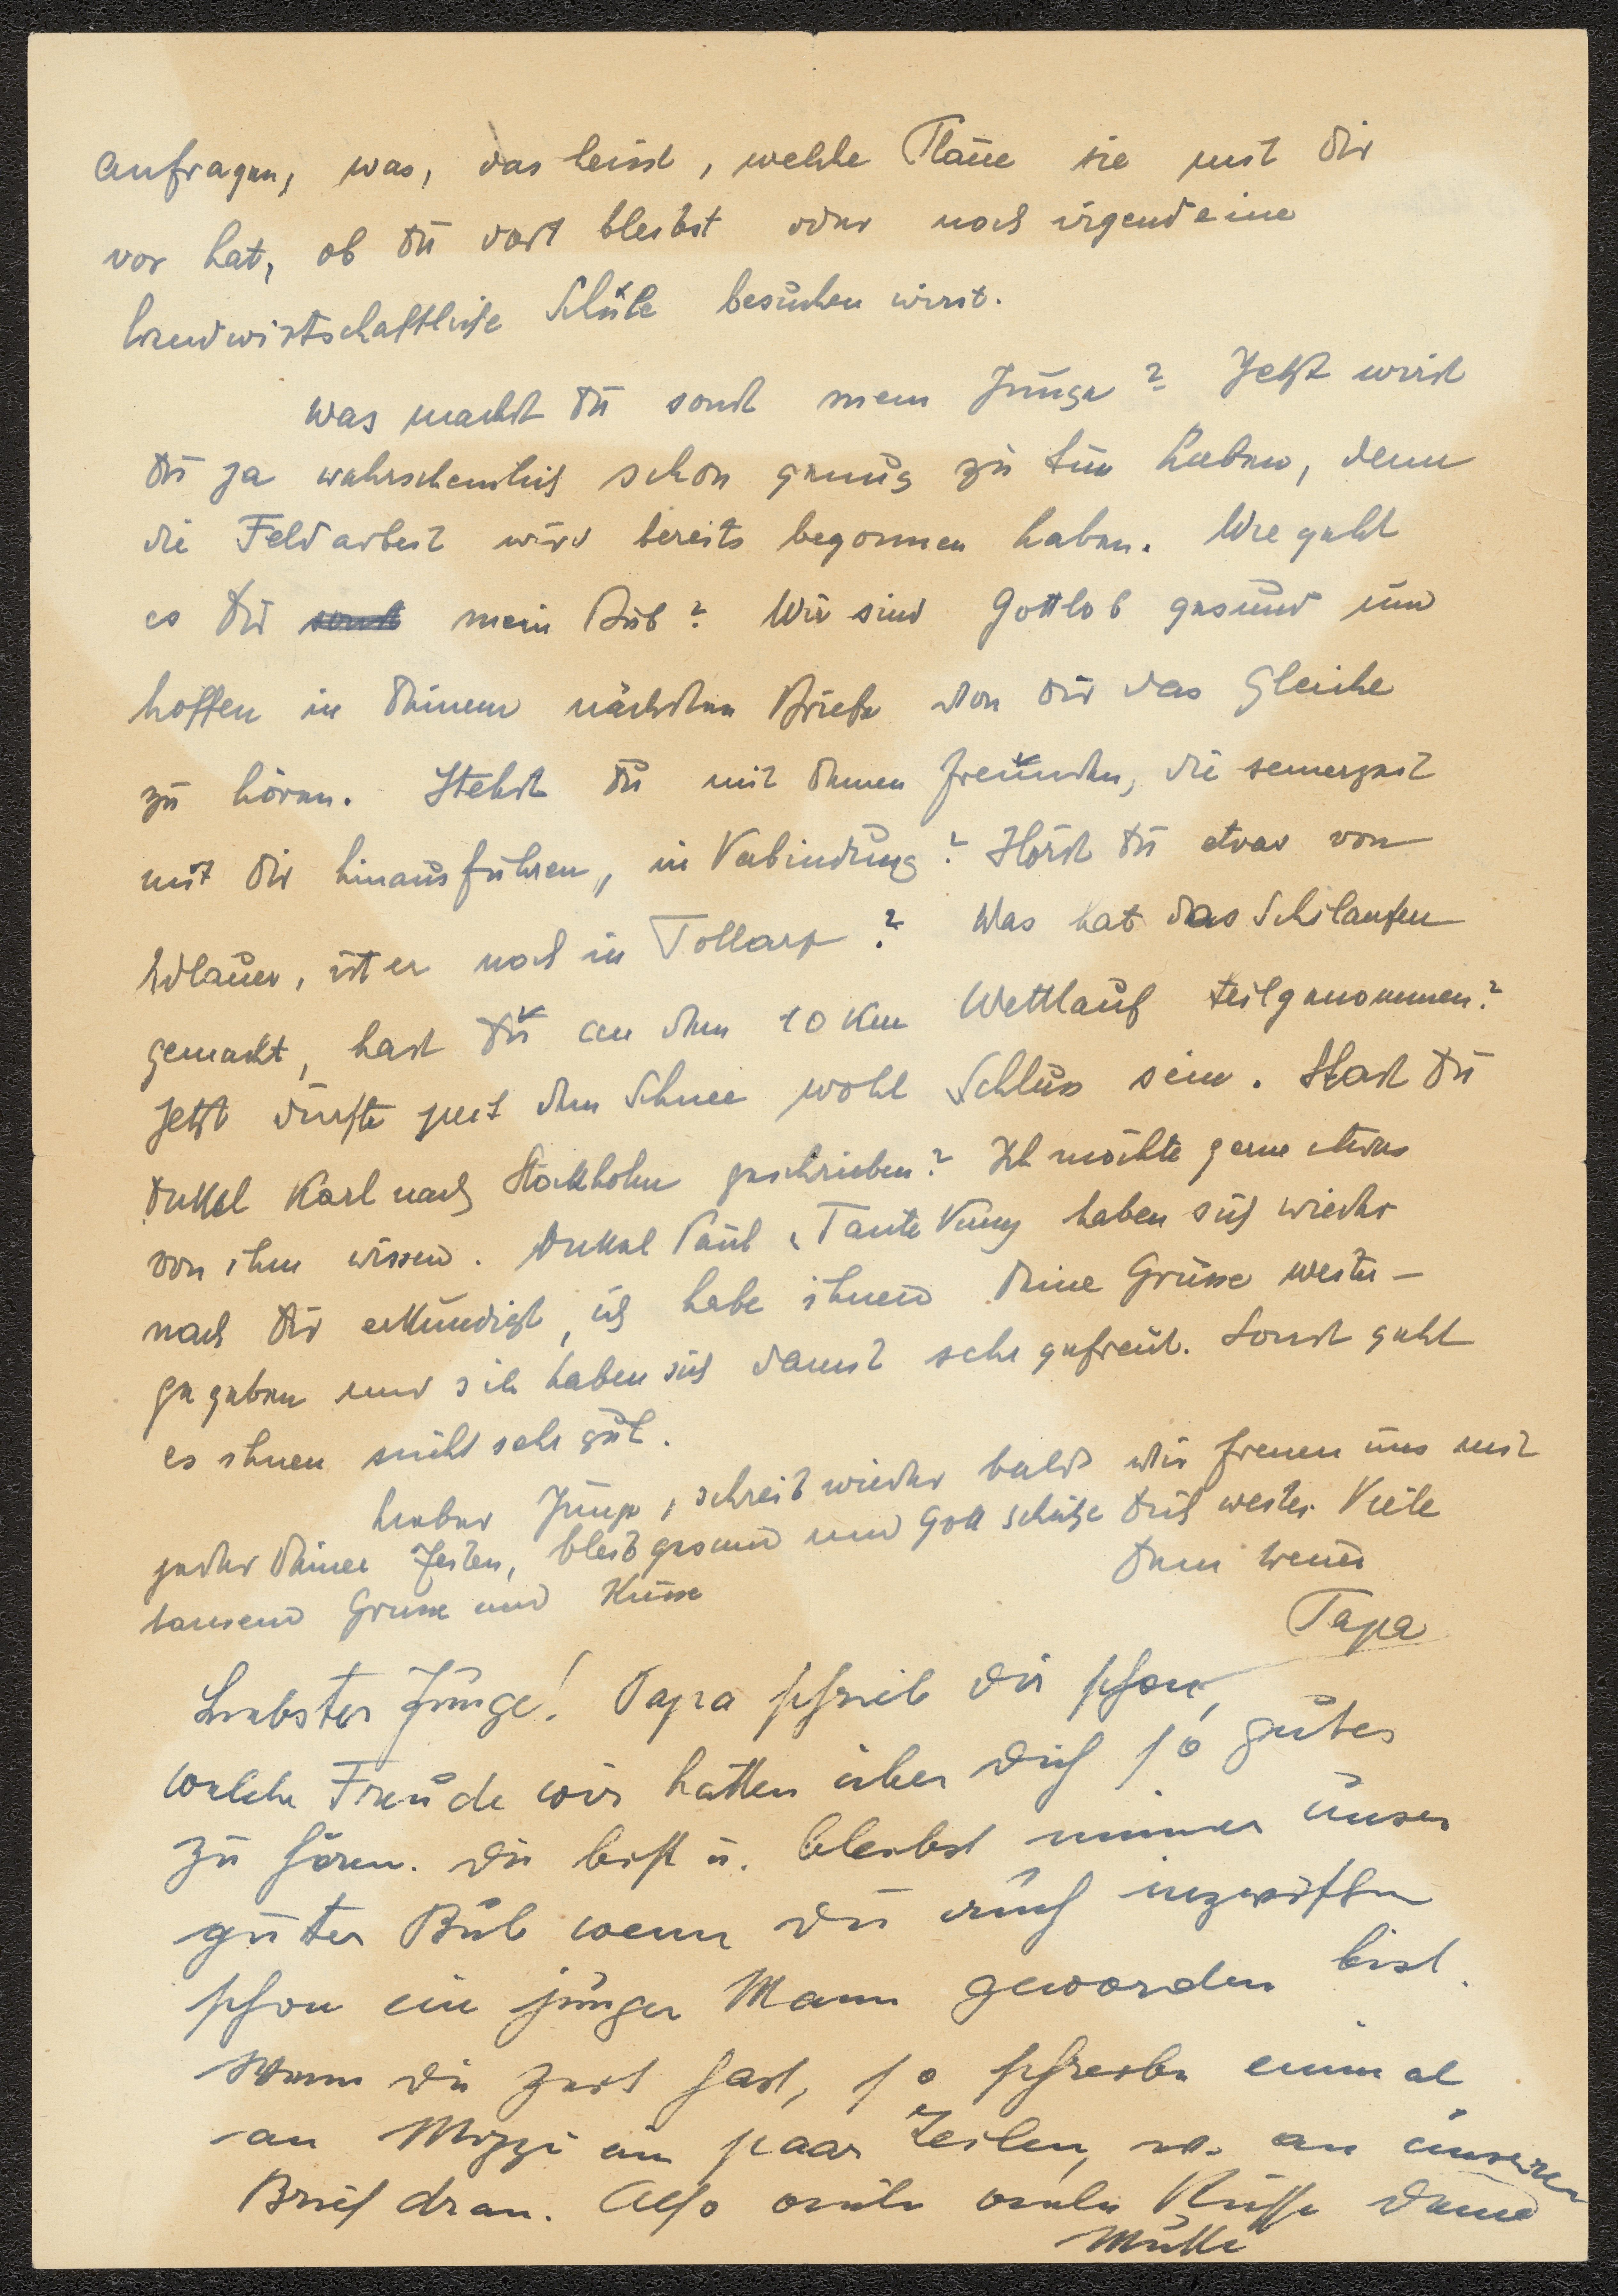 anfragen, was, das heisst, welche Pläne sie mit Dir
vor hat, ob Du dort bleibst oder noch irgendeine
landwirtschaftliche Schule besuchen wirst.
Was machst Du sonst mein Junge? Jetzt wirst
Du ja wahrscheinlich schon genug zu tun haben, denn
die Feldarbeit wird bereits begonnen haben. Wie geht
es Dir sonst mein Bub? Wir sind Gottlob gesund und
hoffen in Deinem nächsten Briefe von Dir das Gleiche
zu hören. Stehst Du mit Deinen Freunden, die seinerzeit
mit Dir hinausfuhren, in Verbindung? Hörst Du etwas von
Adlauer, ist er noch in Tollarp? Was hat das Schilaufen
gemacht, hast Du an dem 10 Km Wettlauf teilgenommen?
Jetzt dürfte mit dem Schnee wohl Schluss sein. Hast Du
Onkel Karl nach Stockholm geschrieben? Ich möchte gerne etwas
von ihm wissen. Onkel Paul, Tante haben sich wieder
nach Dir erkundigt, ich habe ihnen Deine Grüsse weiter-
gegeben und sie haben sich damit sehr gefreut. Sonst geht
es ihnen nicht sehr gut.
Lieber Junge, schreib wieder bald wir freuen uns mit
jeder Deiner Zeilen, bleib gesund und Gott schütze Dich weiter. Viele
tausend Grüsse und Küsse Dein treuer
Papa
Liebster Junge! Papa schrieb Dir schon,
welche Freude wir hatten über Dich so gutes
zu hören. Du bist u. bleibst immer unser
guter Bub wenn Du auch inzwischen
schon ein junger Mann geworden bist.
Wenn Du Zeit hast, so schreibe einmal
an Mizzi ein paar Zeilen, an unseren
Brief dran. Also viele viele Küsse Deine
Mutti